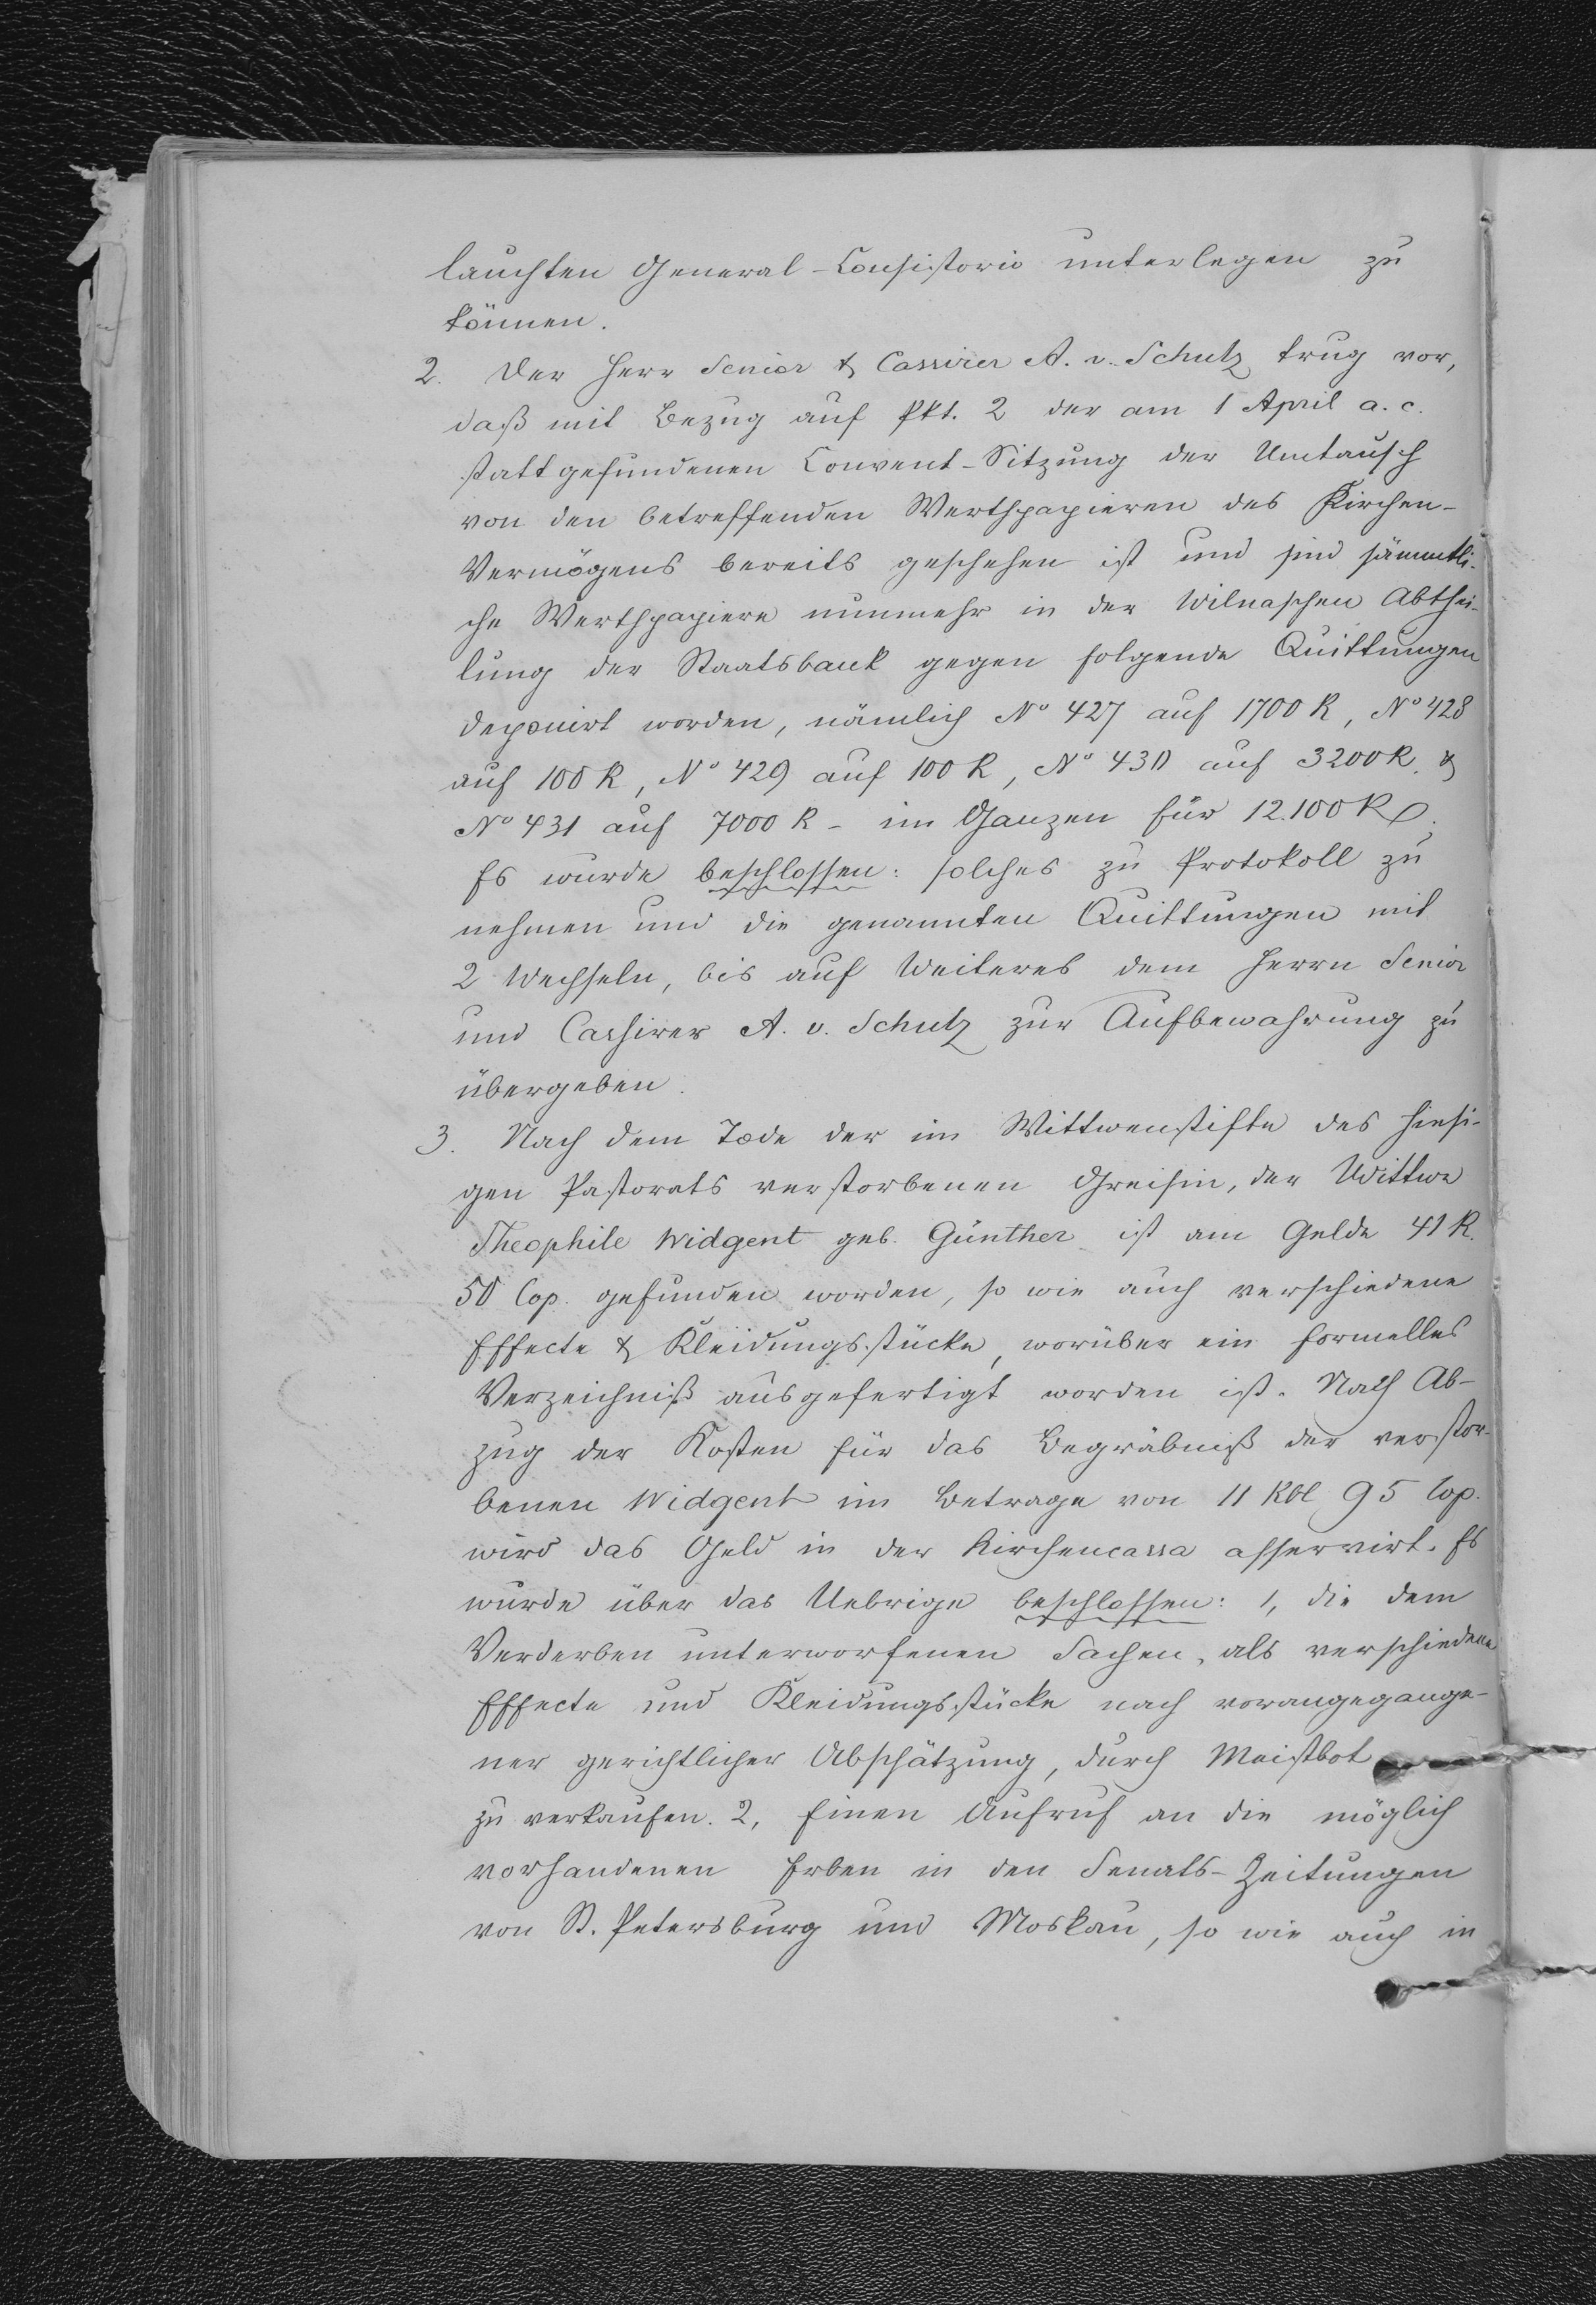 lauchten General-Consistorio unterlegen zu
können.
2. Der Herr Senior & Cassirer A. v. Schulz trug vor,
daß mit Bezug auf Pkt. 2 der am 1 April a. c.
stattgefundenen Convent-Sitzung der Umtausch
von den betreffenden Werthpapieren des Kirchen-
Vermögens bereits geschehen ist und sind sämmtli-
che Werthpapiere nunmehr in der Wilnaschen Abthei-
lung der Staatsbank gegen folgende Quittungen
deponirt worden, nämlich No 427 auf 1700 R, No 428
auf 100 R, No 429 auf 100 R, No 430 auf 3200 R. &
No 431 auf 7000 R - im Ganzen für 12.100 R
Es wurde beschlossen: solches zu Protokoll zu
nehmen und die genannten Quittungen mit
2 Wechseln, bis auf Weiteres dem Herrn Senior
und Cassirer A. v. Schulz zur Aufbewahrung zu
übergeben.
3. Nach dem Tode der im Wittwenstifte des hiesi-
gen Pastorats verstorbenen Greisin, der Wittwe
Theophile Widgent geb. Günther ist am Gelde 41 R.
50 Cop. gefunden worden, so wie auch verschiedene
Effecte & Kleidungsstücke, worüber ein formelles
Verzeichniß ausgefertigt worden ist. Nach Ab-
zug der Kosten für das Begräbniß der verstor-
benen Widgent im Betrage von 11 Rbl 95 Cop.
wird das Geld in der Kirchencassa asservirt. Es
wurde über das Uebrige beschlossen: 1, die dem
Verderben unterworfenen Sachen, als verschiedene
Effecte und Kleidungsstücke nach vorangegange-
ner gerichtlicher Abschätzung, durch Meistbot
zu verkaufen. 2, Einen Aufruf an die möglich
vorhandenen Erben in den Senats-Zeitungen
von St. Petersburg und Moskau, so wie auch in